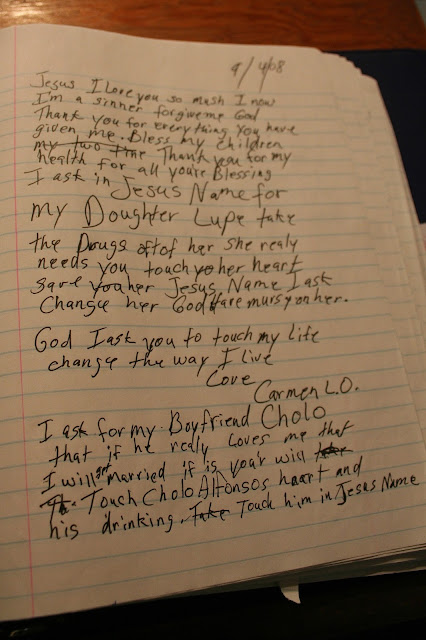 9/4/08
Jesus I love you so mush I now
I'm a sinner forgive me God
Thank you for everything you have
given me. Bless my children
my two Thank you for my
health for all you're Blessing
I ask in Jesus Name for
my Doughter Lupe take
the Drugs oft of her she realy
needs you touch her heart
save her Jesus Name I ask
Change her God Have mursy on her.
God I ask you to touch my life
change the way I live
Love
Carmen L.O.
I ask for my Boyfriend Cholo
that if he really Loves me that
I will get married if is your will
Touch Cholo Alfonsos heart and
his drinking. Take Touch him in Jesus Name